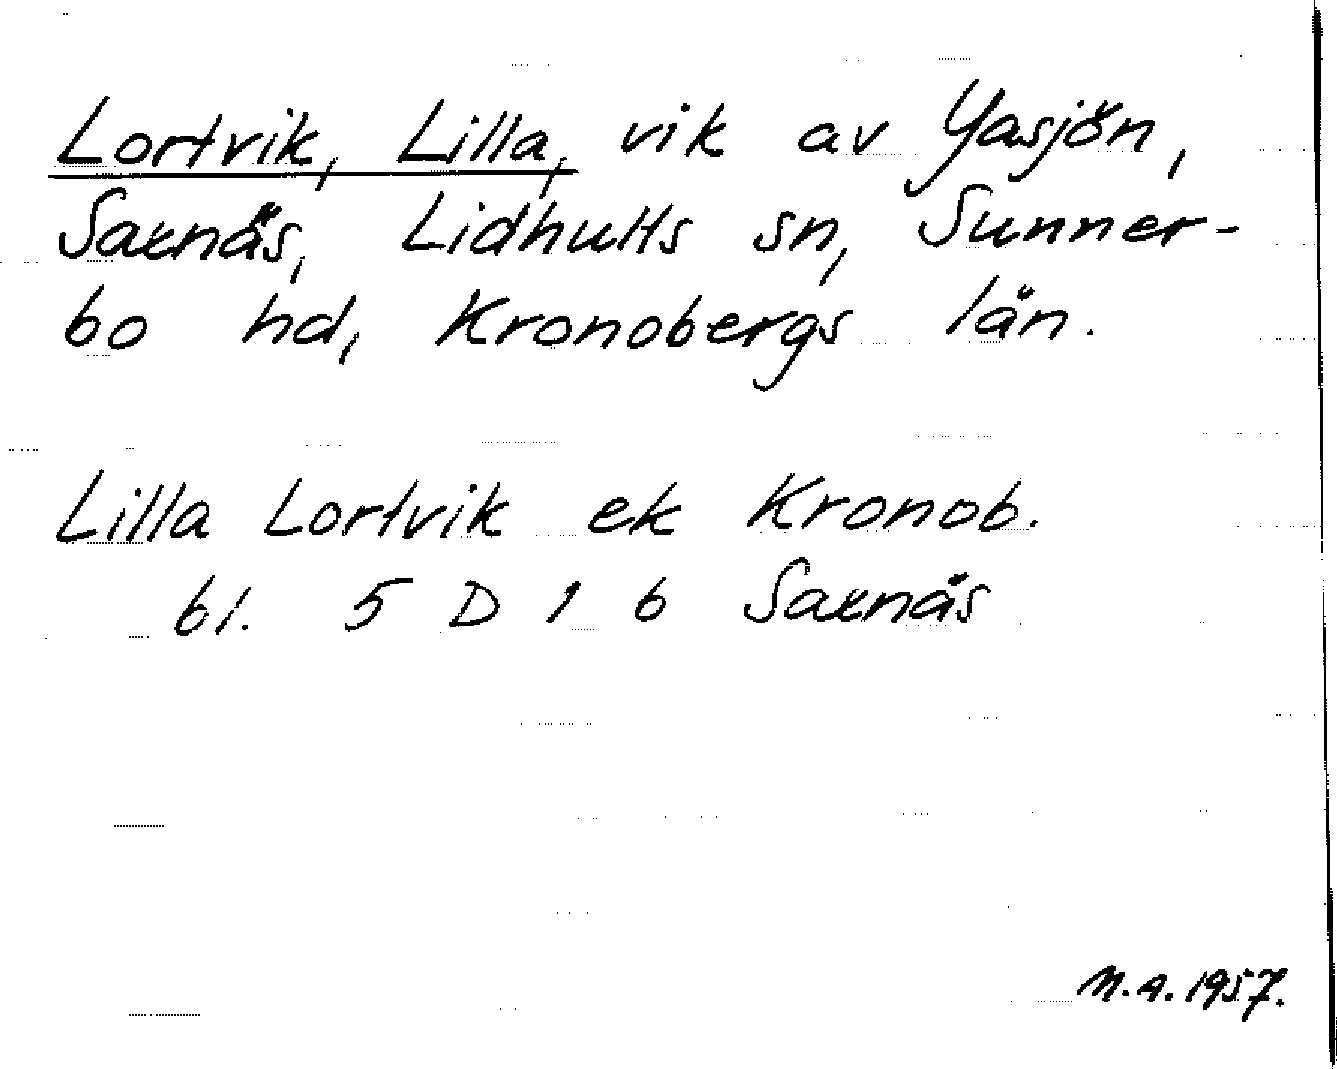 Lortvik, Lilla, vik av Yasjön,
Saxnäs, Lidhults sn, Sunner-
bo hd, Kronobergs län.
Lilla Lortvik ek Kronob.
bl. 5 D 1 b Saxnäs
N.A. 1957.